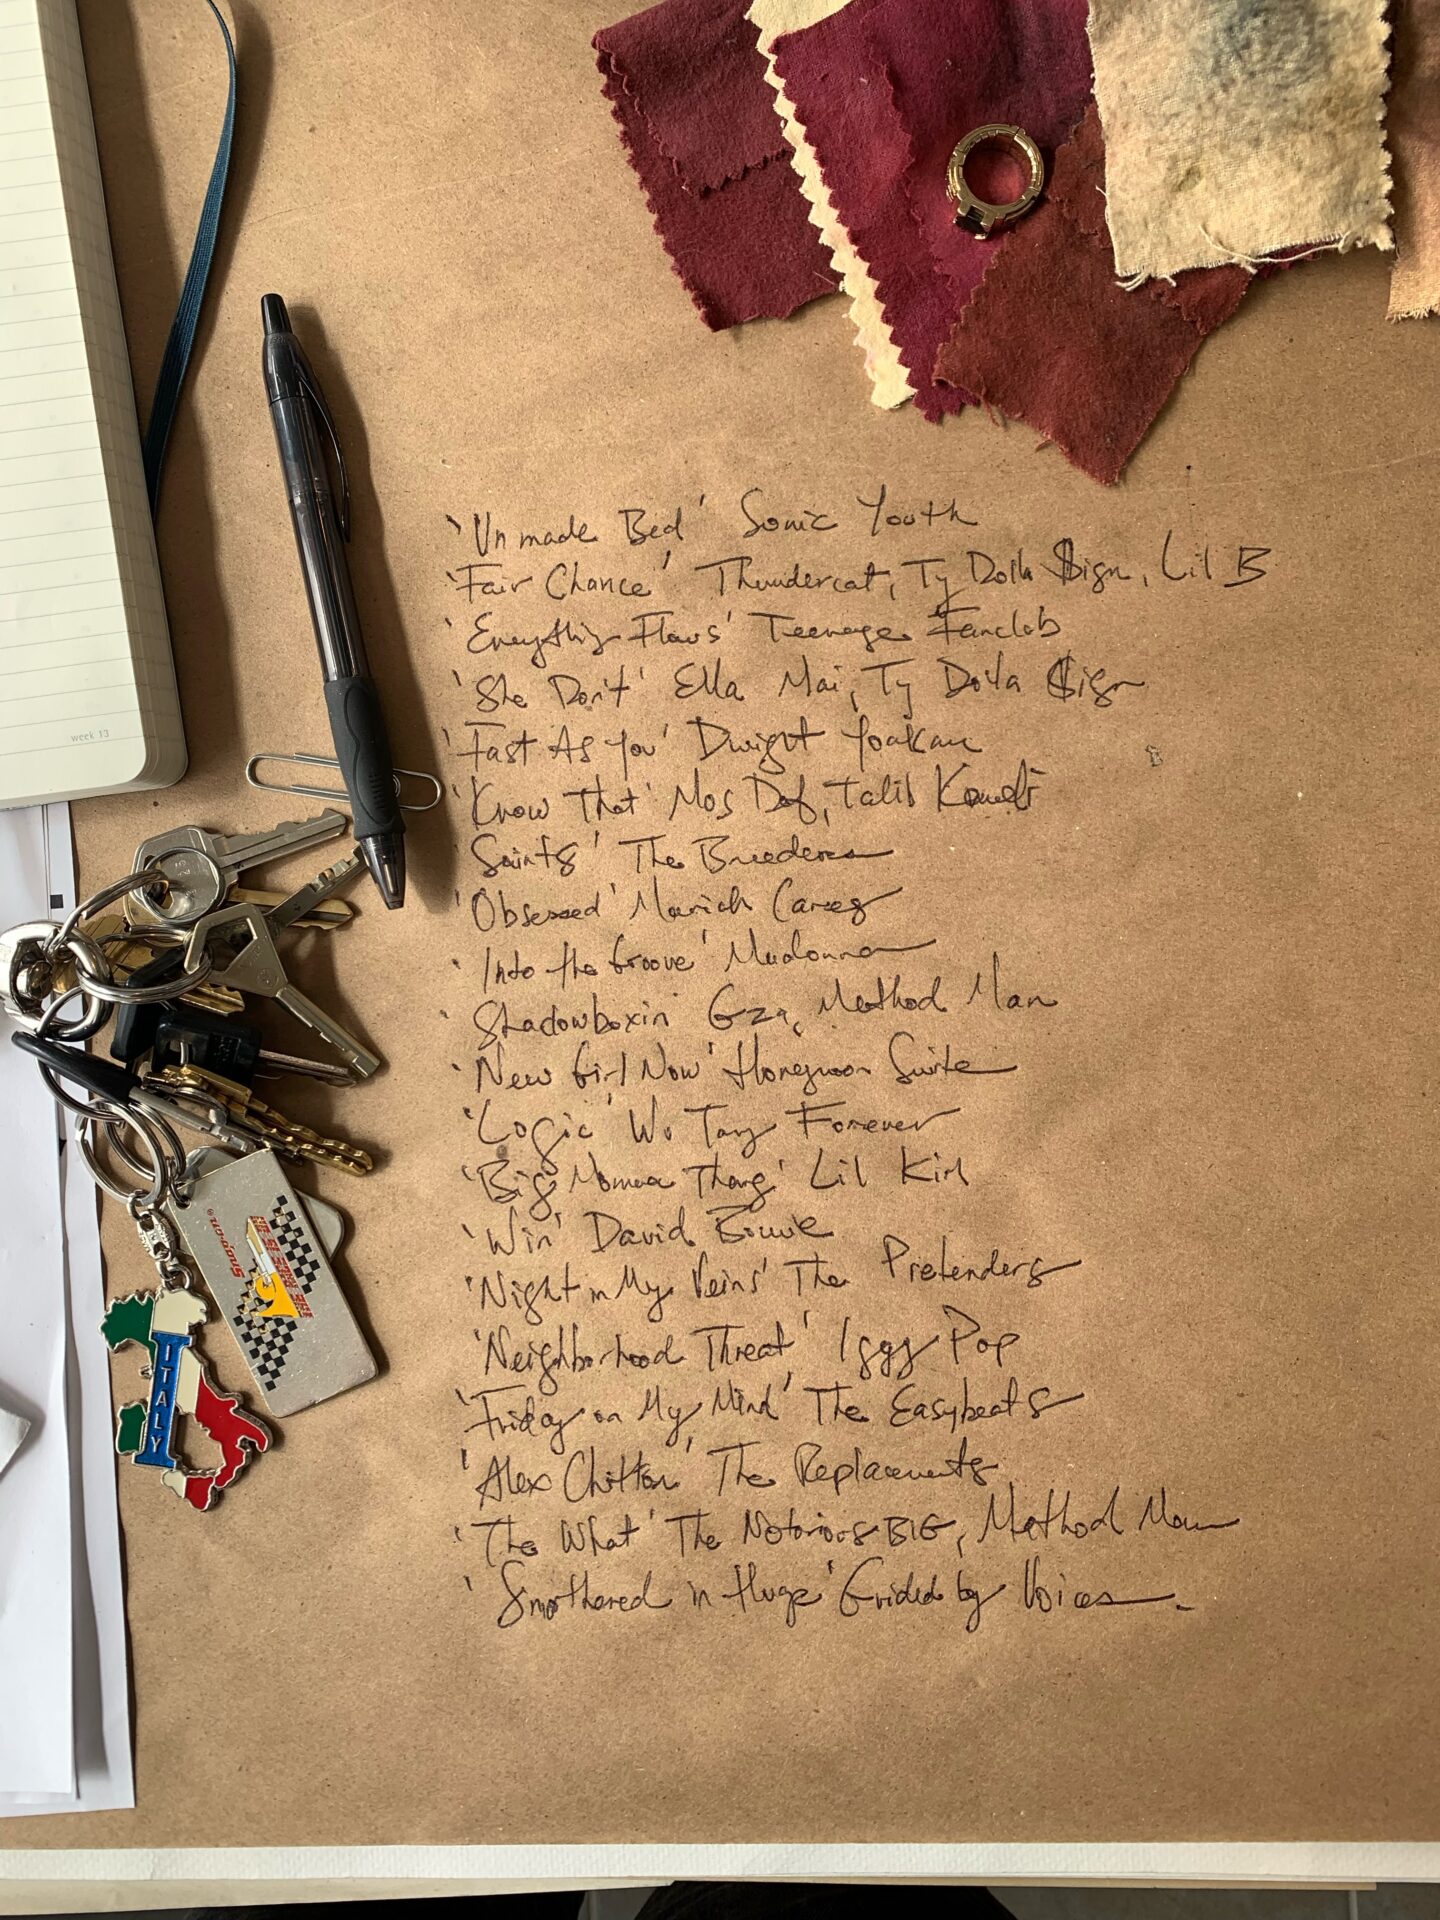 week 13
'Unmade Bed' Sonic Youth
'Fair Chance' Thundercat, Ty Dolla $ign, Lil B
'Everything Flows' Teenage Fanclub
'She Don't' Ella Mai, Ty Dolla $ign
'Fast As You' Dwight Yoakam
'Know That' Mos Def, Talib Kweli
'Saints' The Breeders
'Obsessed' Mariah Carey
'Into the Groove' Madonna
'Shadowboxin' Gza, Method Man
'New Girl Now' Honeymoon Suite
'Logic' Wu Tang Forever
'Big Momma Thang' Lil Kim
'Win' David Bowie
'Night in My Veins' The Pretenders
'Neighborhood Threat' Iggy Pop
'Friday on My Mind' The Easybeats
'Alex Chilton' The Replacements
'The What' The Notorious BIG, Method Man
'Smothered in Hugs' Guided by Voices.
Snap-on
ITALY